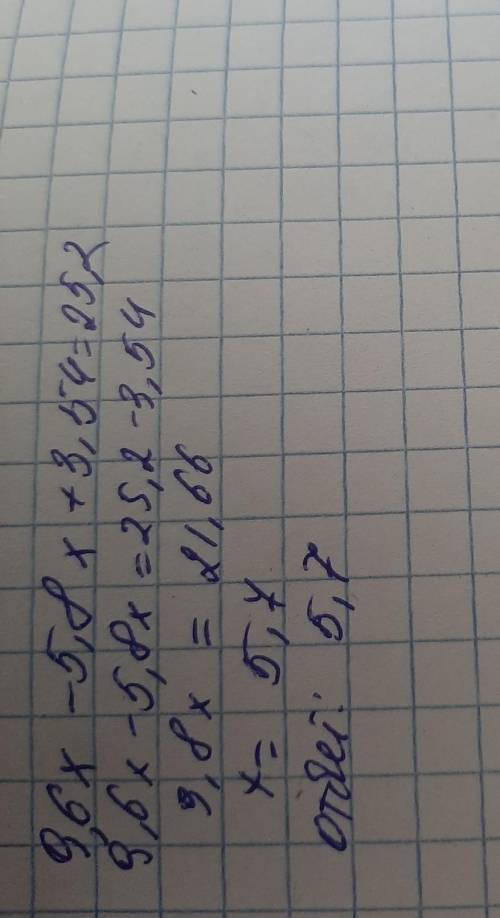 9,6x - 5,8x + 3,54 = 25,2
9,6x - 5,8x = 25,2 - 3,54
9,8x = 21,66
x = 5,7
ответ: 5,7